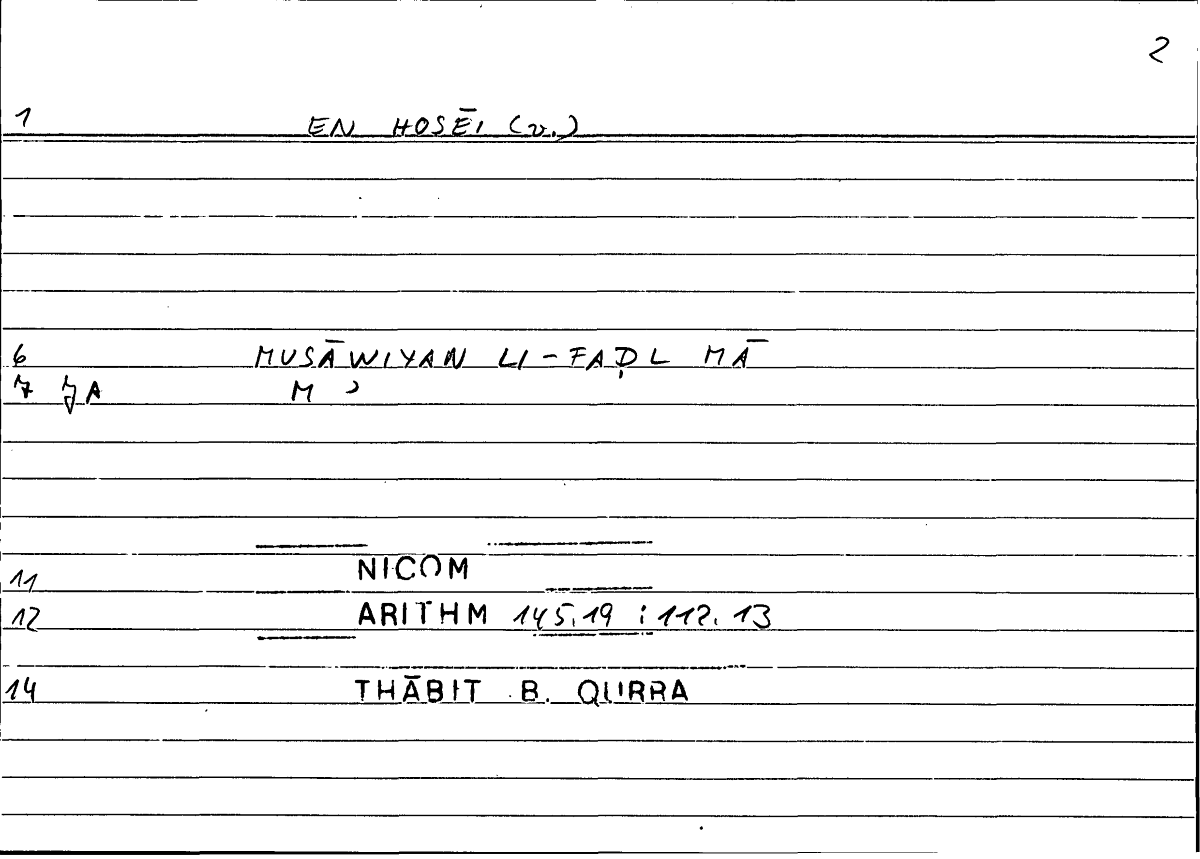 2
1 EN HOSĒI (v.)
6 MUSĀWIYAN LI-FAḌL MĀ
7 A M ʾ
11 NICOM
12 ARITHM 145.19 : 112.13
14 THĀBIT B. QURRA